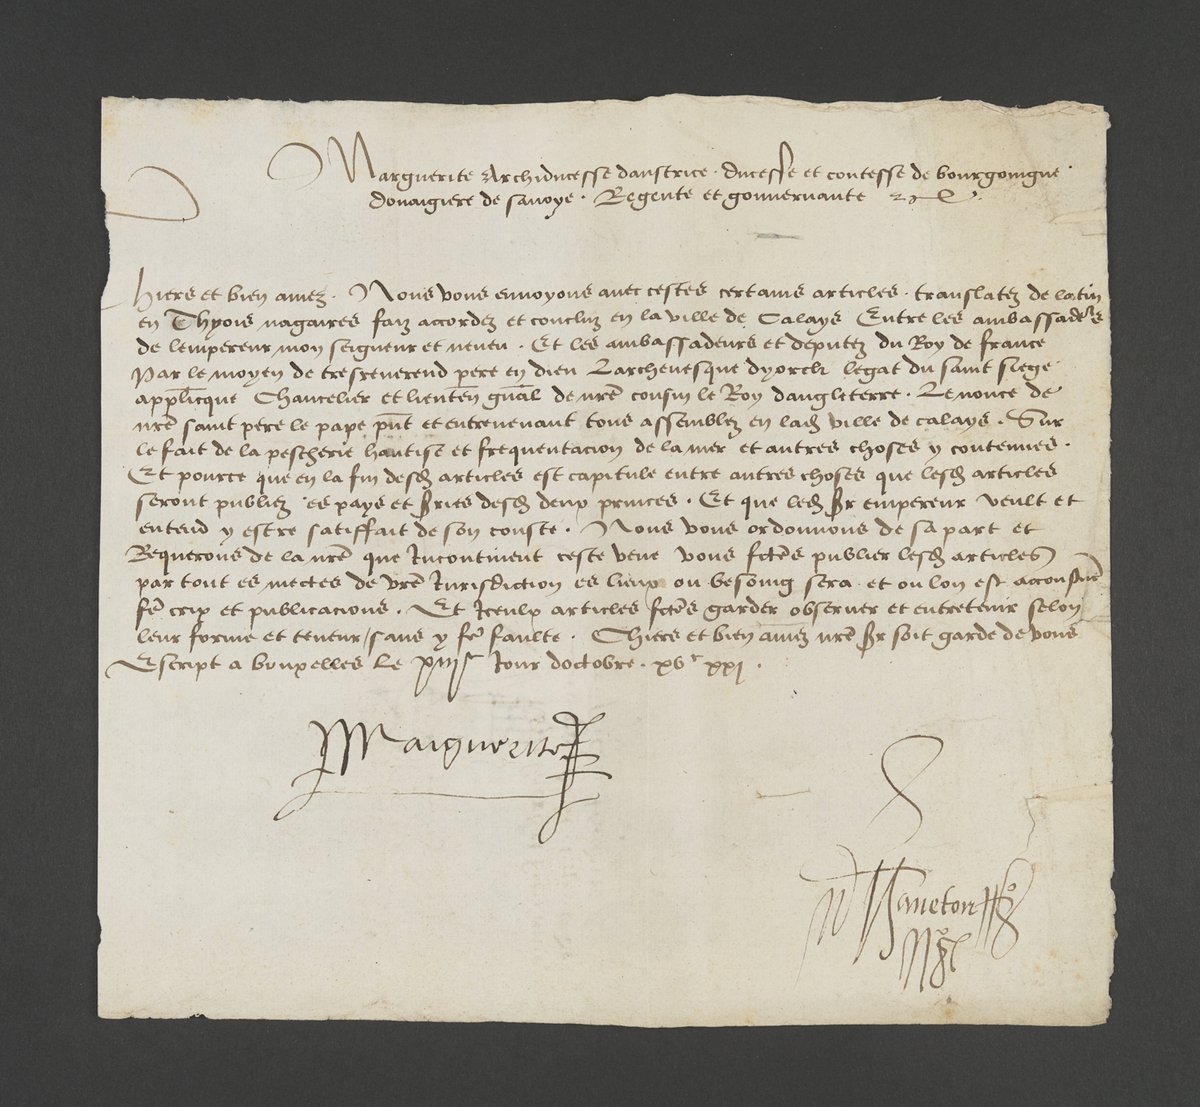 Marguerite Archiducesse daustrice · ducesse et contesse de bourgoingne ·
douaigiere de savoye · Regente et gouvernante
Chiers et bien amez · Nous vous envoyons avec cestes certains articles · translatez de latin
en Thyois nagaires faiz accordez et concluz en la ville de Calays Entre les ambassadrs
de lempereur mon seigneur et neveu · Et les ambassadeurs et deputez du Roy de france
Par le moyen de tresreverend pere en dieu Larchevesque dyorck legat du saint siege
applicque Chancelier et lieuten gnal de nre cousin le Roy dangleterre · Le nonce de
nre saint pere le pape pnt et entrevenant tous assemblez en lad ville de calays · Sur
le fait de la pescherie hantise et frequentacion de la mer et autres choses y contenues ·
Et pource que en la fin desd articles est capitule entre autres choses que lesd articles
seront publiez es pays et sries desd deux princes · Et que led sr empereur veult et
entend y estre satiffait de son couste · Nous vous ordonnons de sa part et
Requerons de la nre que Incontinent ceste veue vous fctes publier lesd articles
par tout es mectes de vre Jurisdiction es lieux ou besoing sera et ou lon est accoustume
fe crix et publicacions · Et Iceulx articles fctes garder observer et entretenir selon
leur forme et teneur / sans y fe faulte · Chiers et bien amez nre sr soit garde de vous
Escript a bruxelles le xiiije Jour doctobre · xvc xxj ·
Marguerite
Haneton